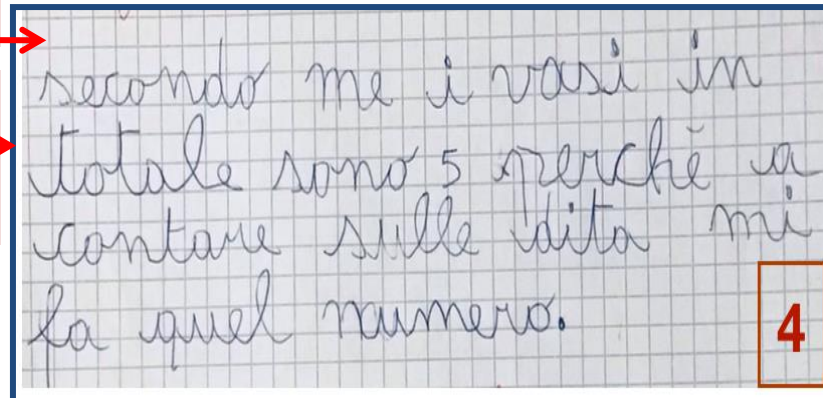 secondo me i vasi in
totale sono 5 perchè a
contare sulle dita mi
fa quel numero.
4